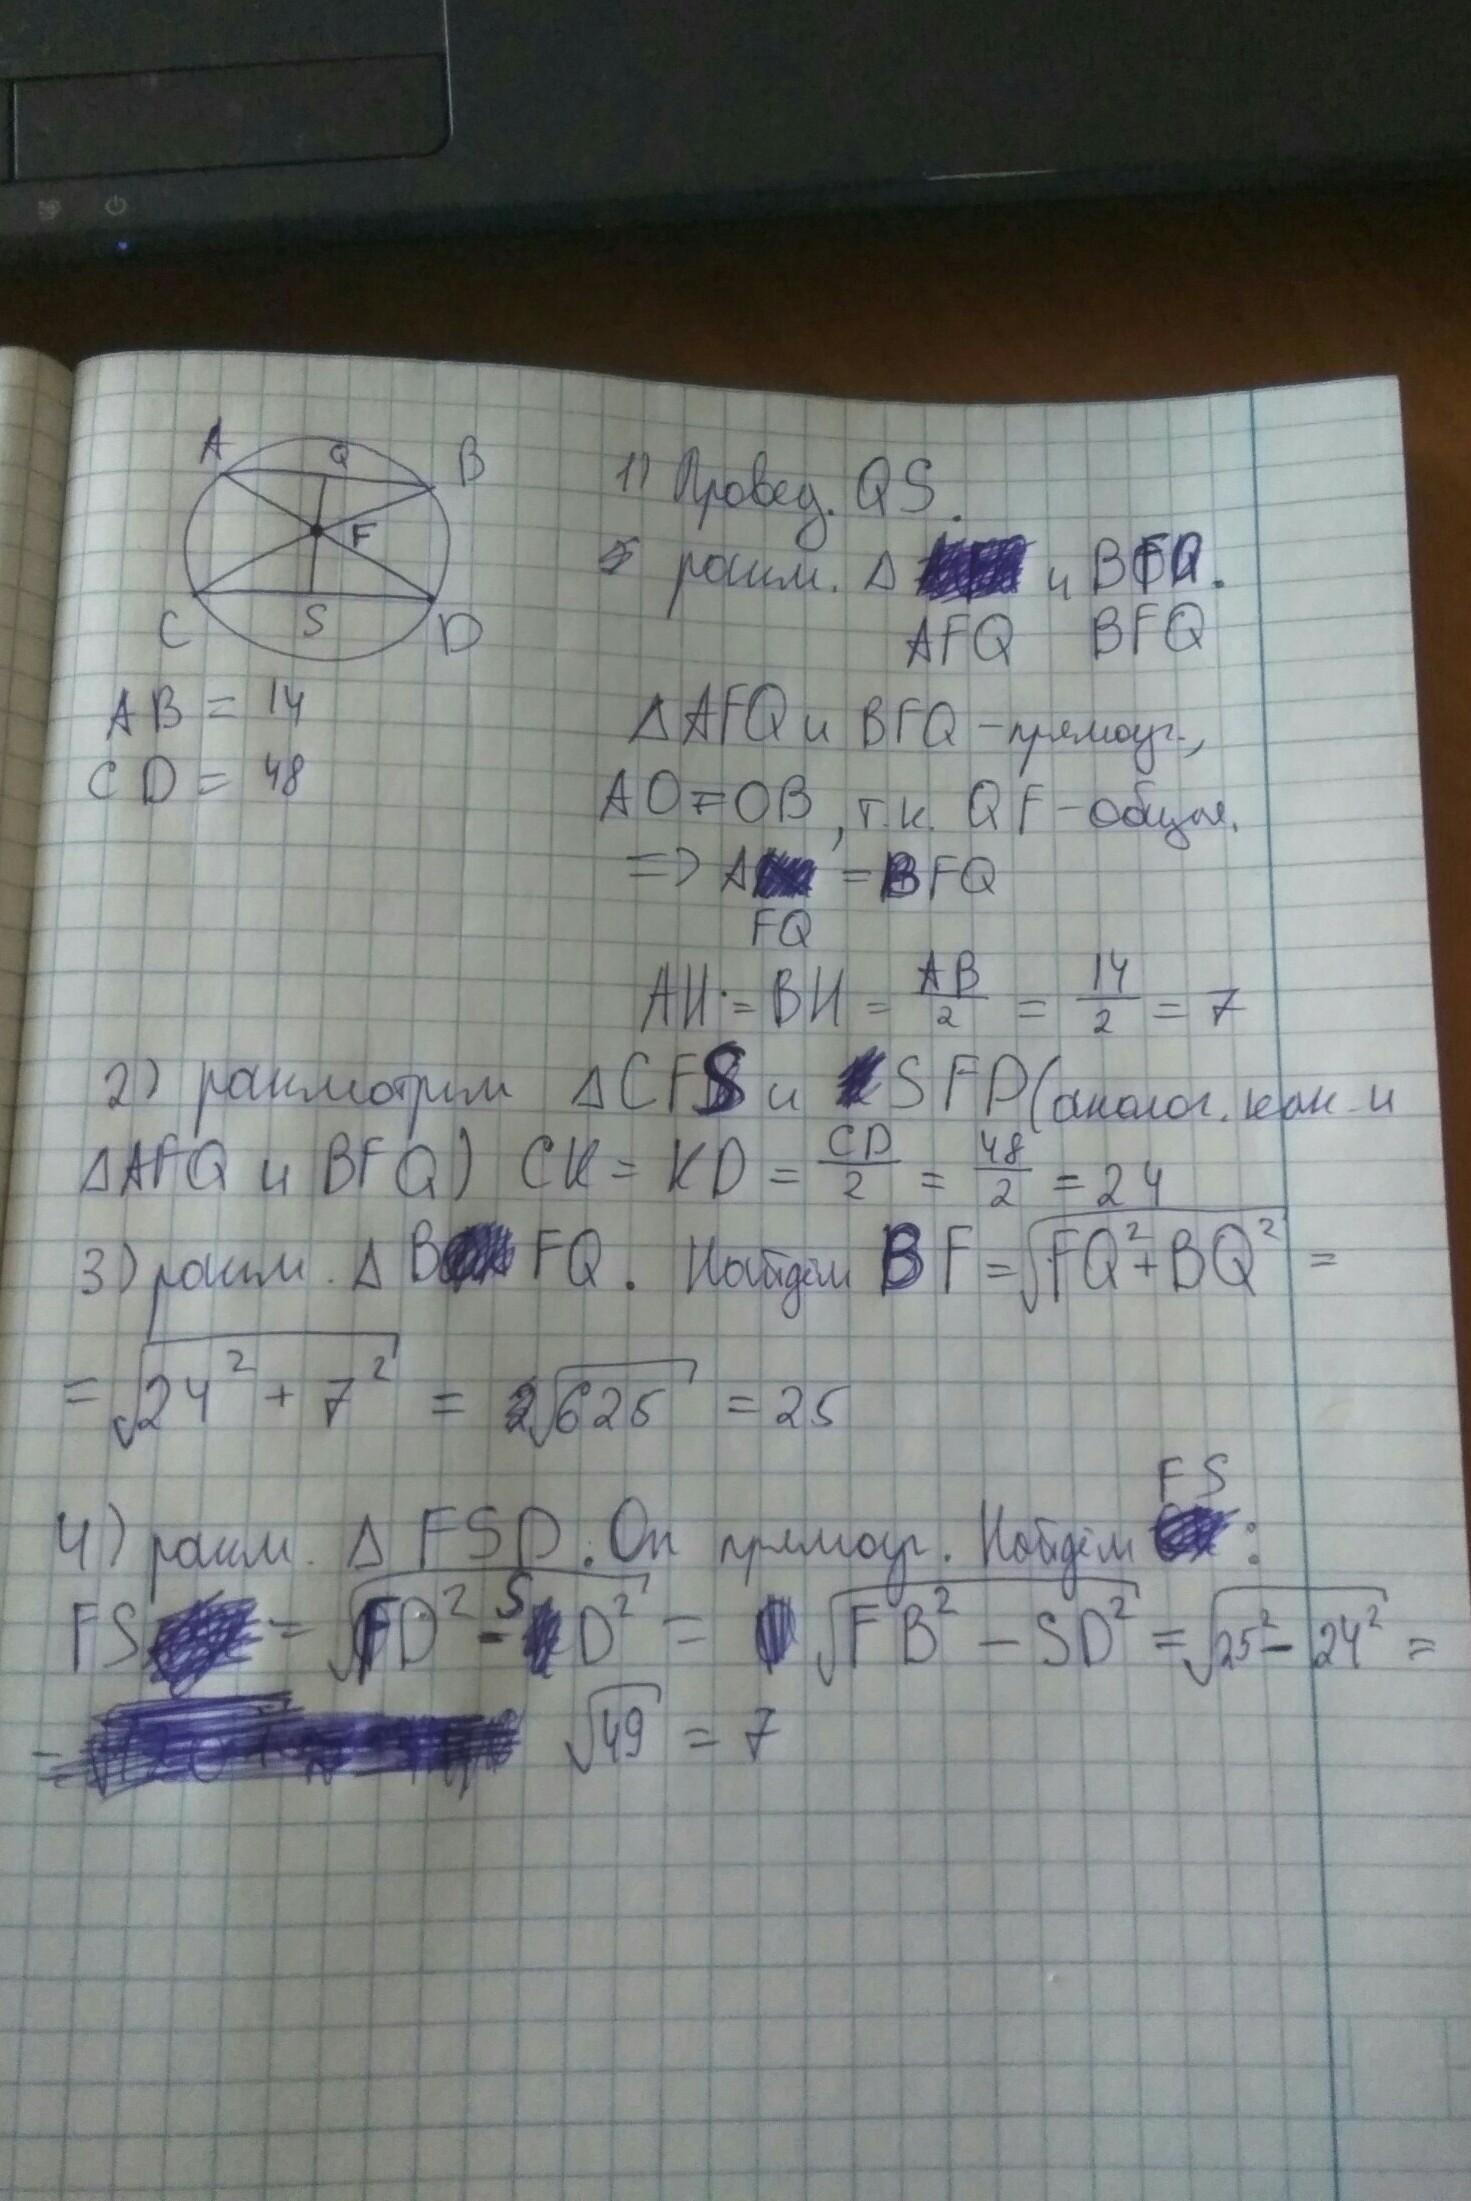 A Q B
F
C S D
AB = 14
CD = 48
1) Провед. QS.
рассм. Δ и BFQ.
AFQ BFQ
ΔAFQ и BFQ - прямоуг.,
AO = OB, т.к. QF - общая.
=> A = BFQ
FQ
AH = BH = AB/2 = 14/2 = 7
2) рассмотрим ΔCFS и SFD (аналог. как и
ΔAFQ и BFQ) CK = KD = CD/2 = 48/2 = 24
3) рассм. Δ B FQ. Найдём BF = √FQ² + BQ² =
= √24² + 7² = √625 = 25
4) рассм. Δ FSD. Он прямоуг. Найдём FS :
FS = √FD² - SD² = √FB² - SD² = √25² - 24² =
= √49 = 7